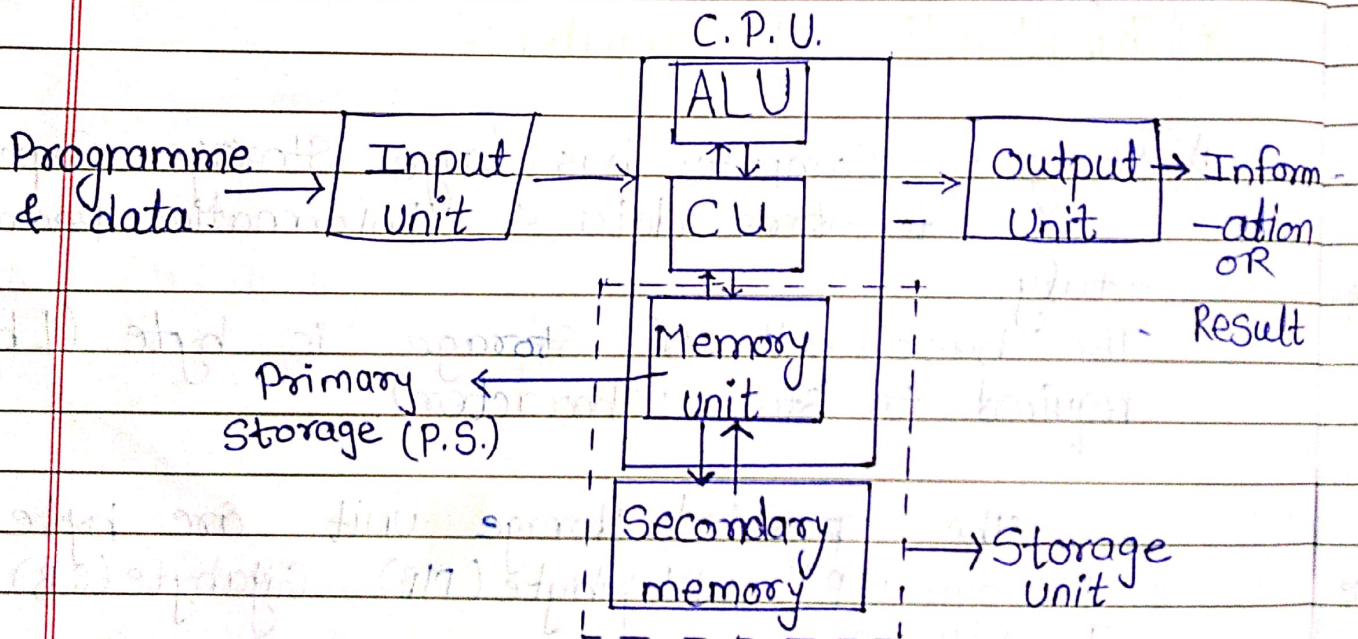 C.P.U.
ALU
Programme
& data.
Input
unit
CU
Output
Unit
Inform-
-ation
OR
Result
Memory
unit
Primary
Storage (P.S.)
Secondary
memory
Storage
unit